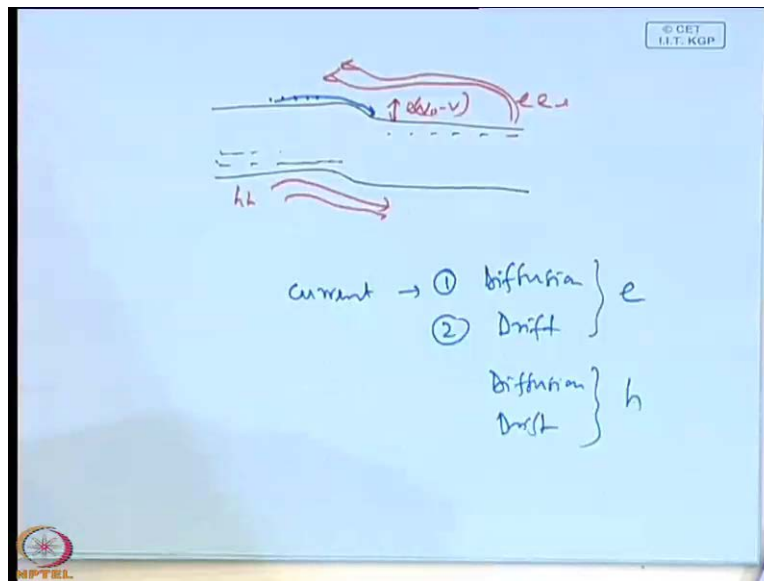 © CET
I.I.T. KGP
e e
hh
current → ① Diffusion } e
② Drift
Diffusion } h
Drift
NPTEL